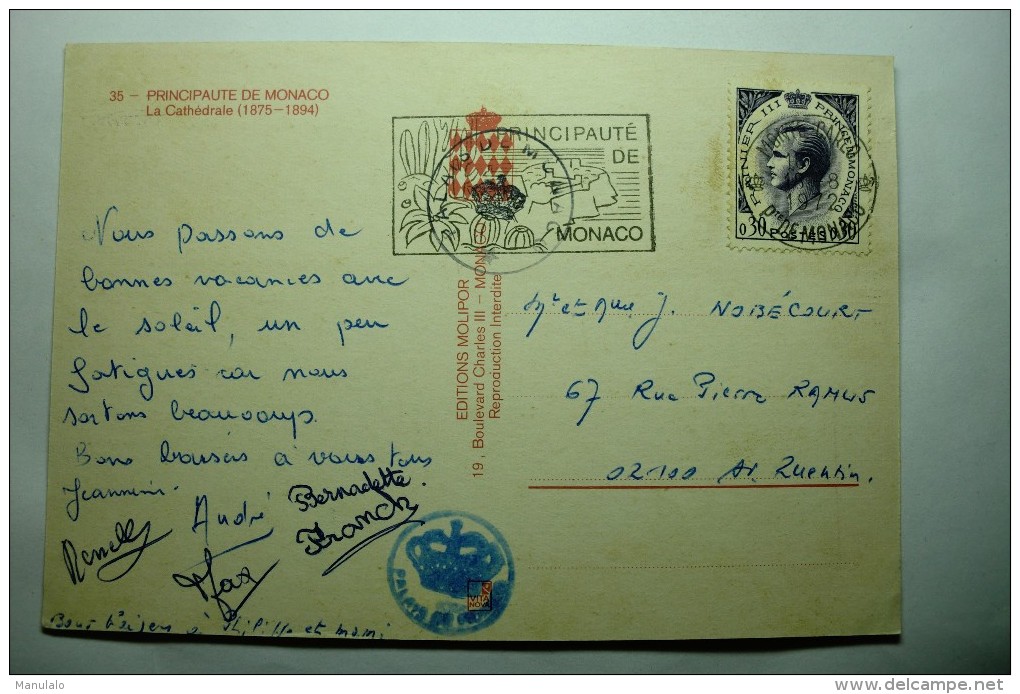 35 – PRINCIPAUTE DE MONACO
La Cathédrale (1875–1894)
PRINCIPAUTÉ
DE
MONACO
RAINIER III PRINCE DE MONACO
0,30 POSTES 0,30
Nous passons de
bonnes vacances avec
le soleil, un peu
fatigues car nous
sortons beaucoup.
Bons baisers à vous tous
Jeannine.
André
Bernadette
Franck
Max
Bons baisers à Philippe et mami
EDITIONS MOLIPOR
19, Boulevard Charles III – MONACO
Reproduction Interdite
Mr et Mme J. NOBÉCOURT
67 Rue Pierre RAMUS
02100 St. Quentin.
PALAIS DE MONACO
VITA
NOVA
© Manulalo
delcampe.net